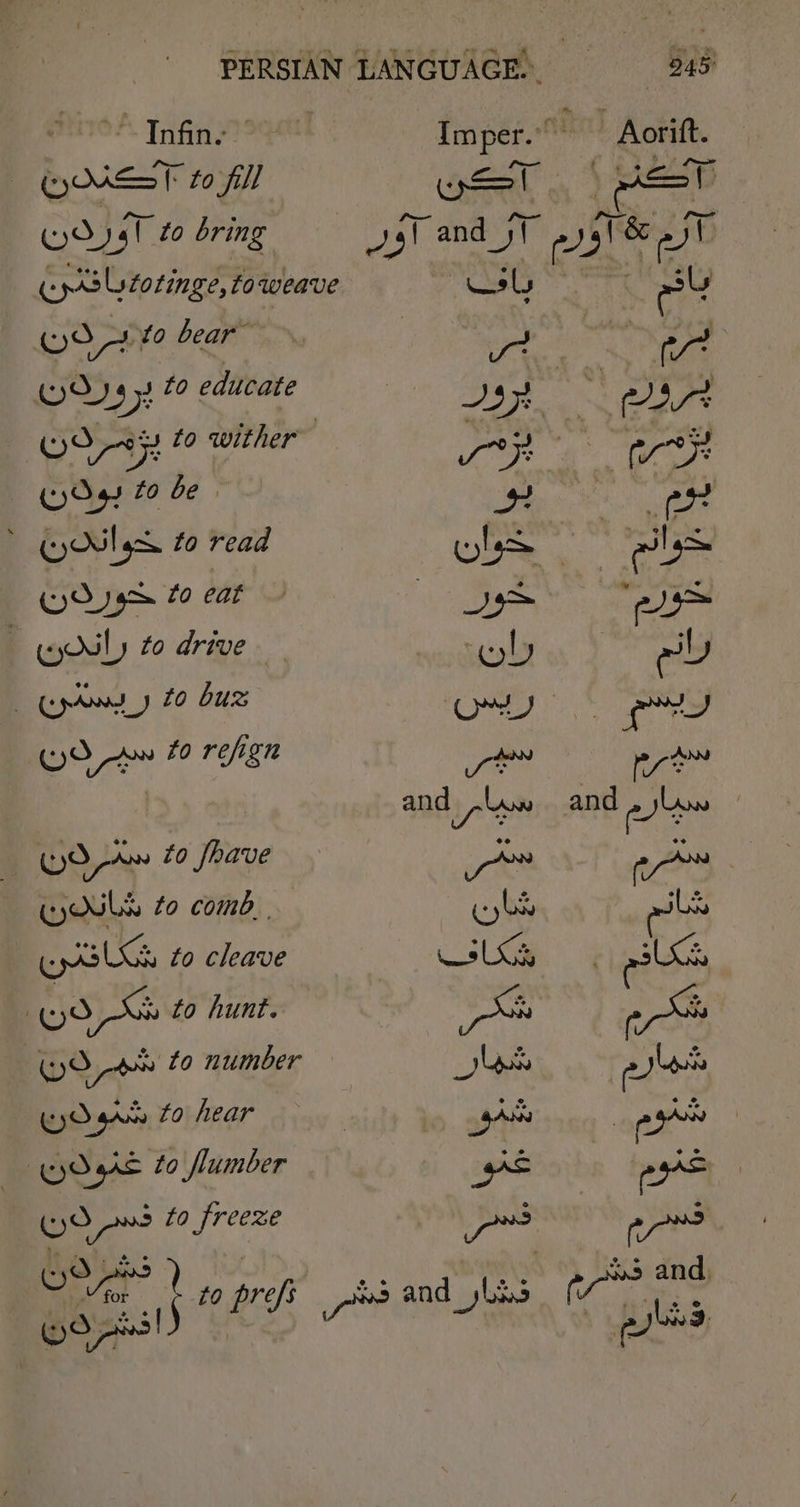 PERSIAN LANGUAGE. 245
Infin. Imper. Aoriſt.
آكندن to fill آكن آكنم
آوردن to bring آور and آر آرم & آورم
بافتن to tinge, to weave باف بافم
بردن to bear بر برم
پروردن to educate پرور پرورم
پژمردن to wither پژمر پژمرم
بودن to be بو بوم
خواندن to read خوان خوانم
خوردن to eat خور خورم
راندن to drive ران رانم
ريستن to buz ريس ريسم
سپردن to reſign سپر سپرم
and سپار and سپارم
ستردن to ſhave ستر سترم
شاندن to comb شان شانم
شكافتن to cleave شكاف شكافم
شكردن to hunt. شكر شكرم
شمردن to number شمار شمارم
شنودن to hear شنو شنوم
غنودن to ſlumber غنو غنوم
فسردن to freeze فسر فسرم
فشردن for افشردن to preſs فشر and فشار فشرم and فشارم